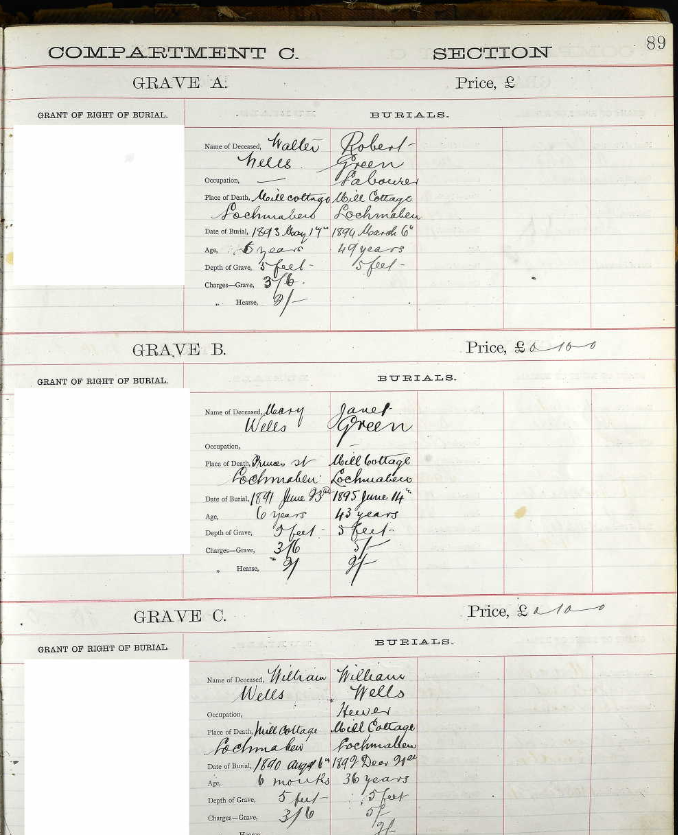 89
COMPARTMENT C. SECTION
GRAVE A. Price, £
GRANT OF RIGHT OF BURIAL. BURIALS.
Name of Deceased, Walter Robert
Wells Green
Occupation, — Labourer
Place of Death, Mill Cottage Mill Cottage
Lochmaben Lochmaben
Date of Burial, 1893 May 17th 1894 March 6th
Age, 6 years 49 years
Depth of Grave, 5 feet 5 feet
Charges—Grave, 3/6
„ Hearse, 2/-
GRAVE B. Price, £ 0-10-0
GRANT OF RIGHT OF BURIAL. BURIALS.
Name of Deceased, Mary Janet
Wells Green
Occupation, —
Place of Death, Princes St Mill Cottage
Lochmaben Lochmaben
Date of Burial, 1891 June 23rd 1895 June 14th
Age, 6 years 43 years
Depth of Grave, 5 feet 5 feet
Charges—Grave, 3/6 5/-
„ Hearse, 2/ 2/-
GRAVE C. Price, £ 0-10-0
GRANT OF RIGHT OF BURIAL. BURIALS.
Name of Deceased, William William
Wells Wells
Occupation, Hewer
Place of Death, Mill Cottage Mill Cottage
Lochmaben Lochmaben
Date of Burial, 1890 Augt 6th 1892 Decr
Age, 6 months 36 years
Depth of Grave, 5 feet 5 feet
Charges—Grave, 3/6 5/-
Hearse 2/-